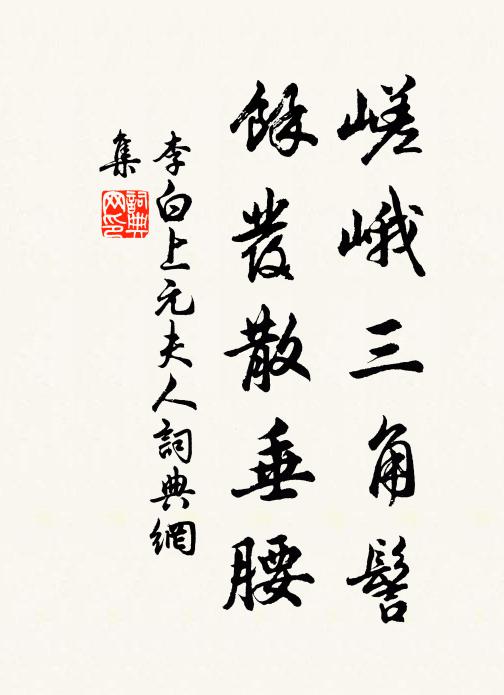 嵯峨三角髻
餘發散垂腰
李白上元夫人詞典網
集
詞典網印